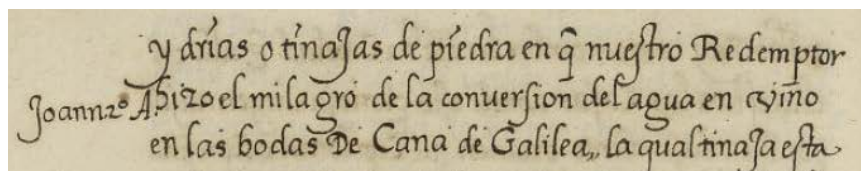 ydrias o tinajas de piedra en q̃ nuestro Redemptor
Joann 2º A. hizo el milagro de la conuersion del agua en vino
en las bodas De Cana de Galilea, la qual tinaja esta